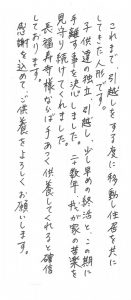 これまで、引越しをする度に移動し住居を共に
してもた人形です。
子供達の独立、引越し、少し早めの終活と、この期に
手離す事を決心しました。二十数年、我が家の苦楽を
見守り続けてくれました。
長福寿寺様ならば手あつく供養してくれると確信
しております。
感謝を込めて、ご供養をよろしくお願いします。